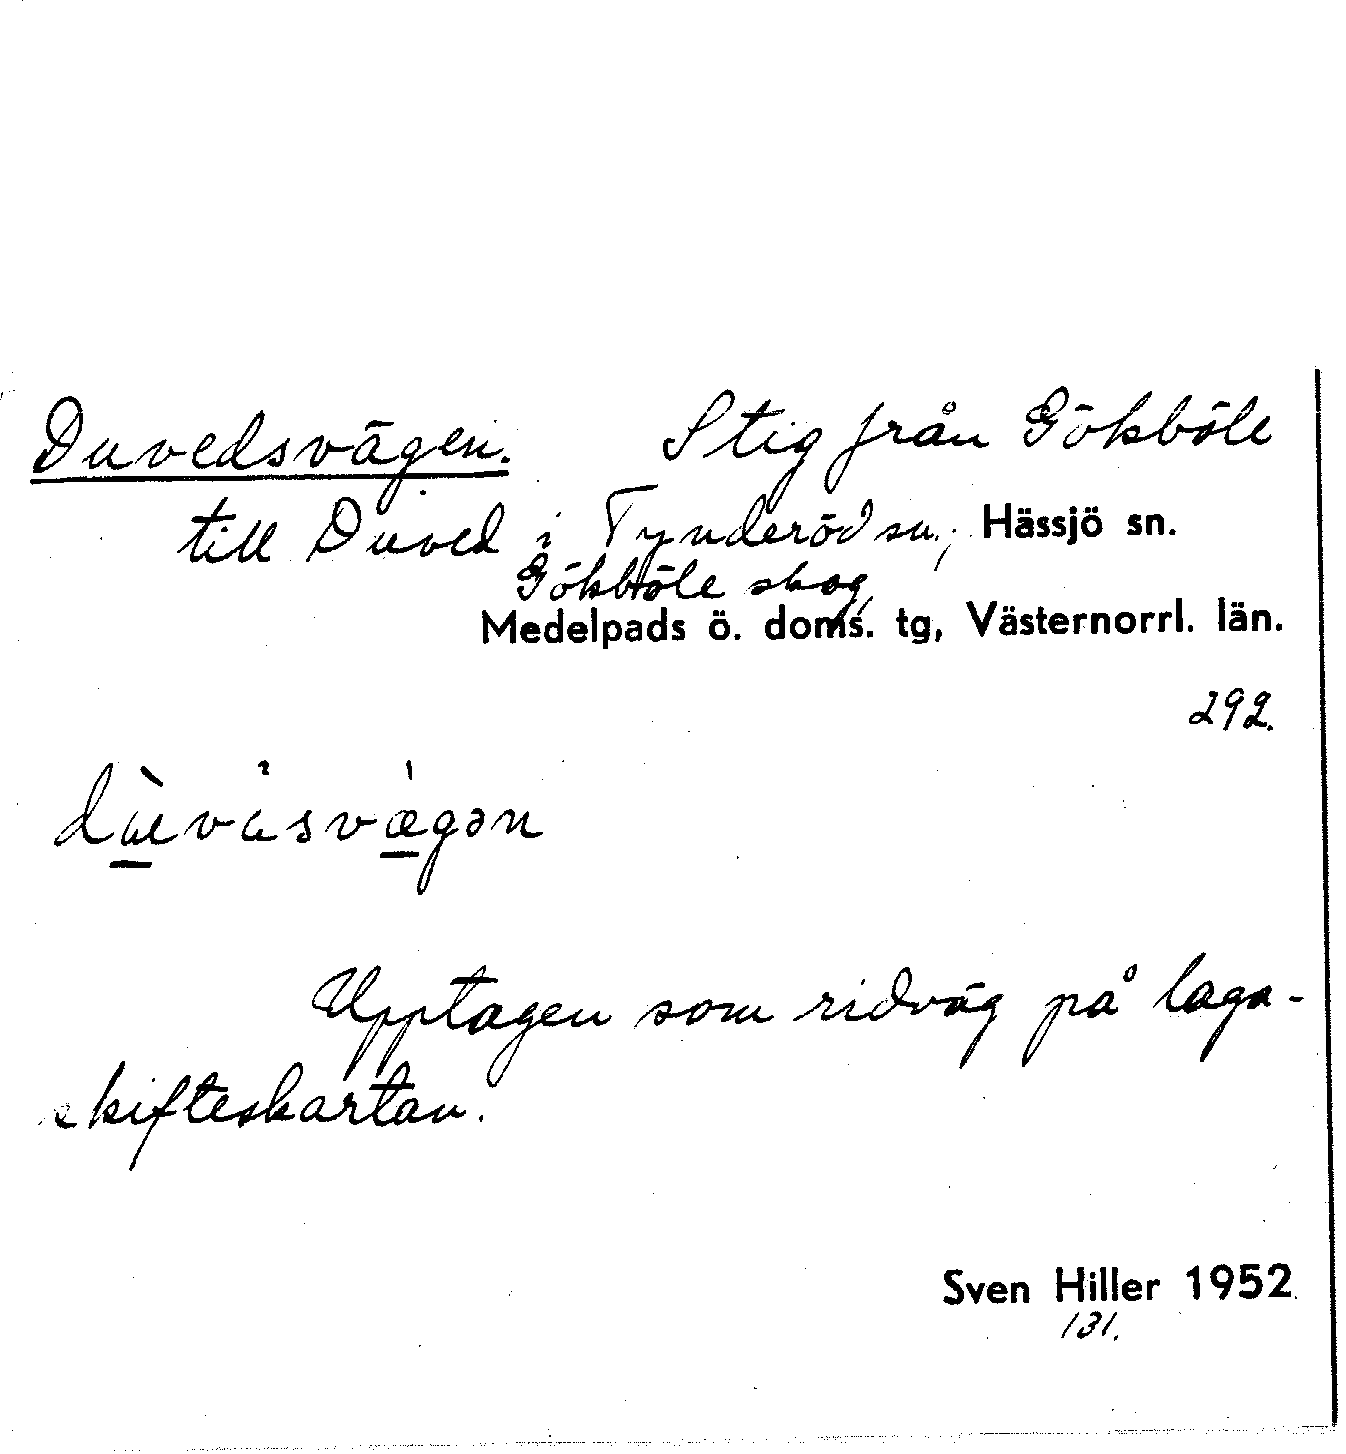 Duvedsvägen. Stig från Gökböle
till Duved i Tynderöd sn, Hässjö sn.
Gökböle skog,
Medelpads ö. doms. tg, Västernorrl. län.
292.
Upptagen som ridväg på laga-
skifteskartan.
Sven Hiller 1952
131.